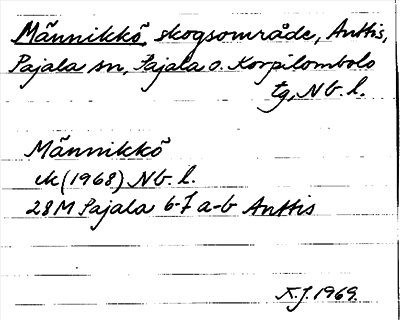 Männikkö, skogsområde, Anttis,
Pajala sn, Pajala o. Korpilombolo
tg, Nb. l.
Männikkö
ek (1968) Nb. l.
28M Pajala 6-7 a-b Anttis
X.J. 1969.